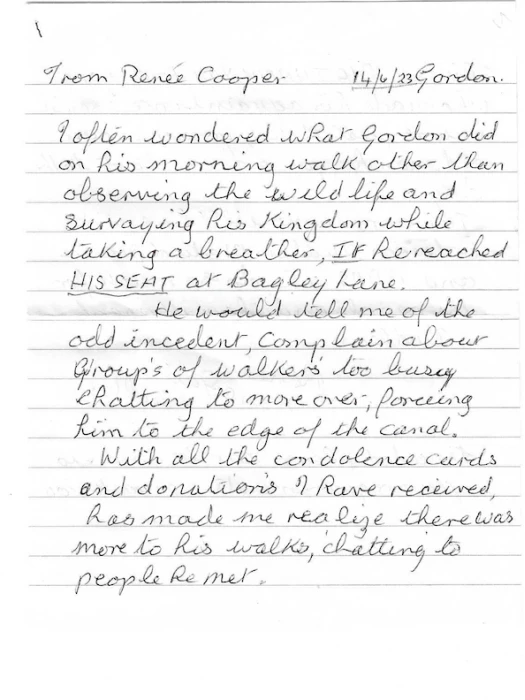 1
From Renée Cooper 14/6/23 Gordon.
I often wondered what Gordon did
on his morning walk other than
observing the wild life and
survaying his Kingdom while
taking a breather, IF he reached
HIS SEAT at Bagley Lane.
He would tell me of the
odd incedent, Complain about
Group's of walker's too busy
Chatting to move over, forceing
him to the edge of the canal.
With all the condolence cards
and donation's I have received,
has made me realize there was
more to his walks, chatting to
people he met.